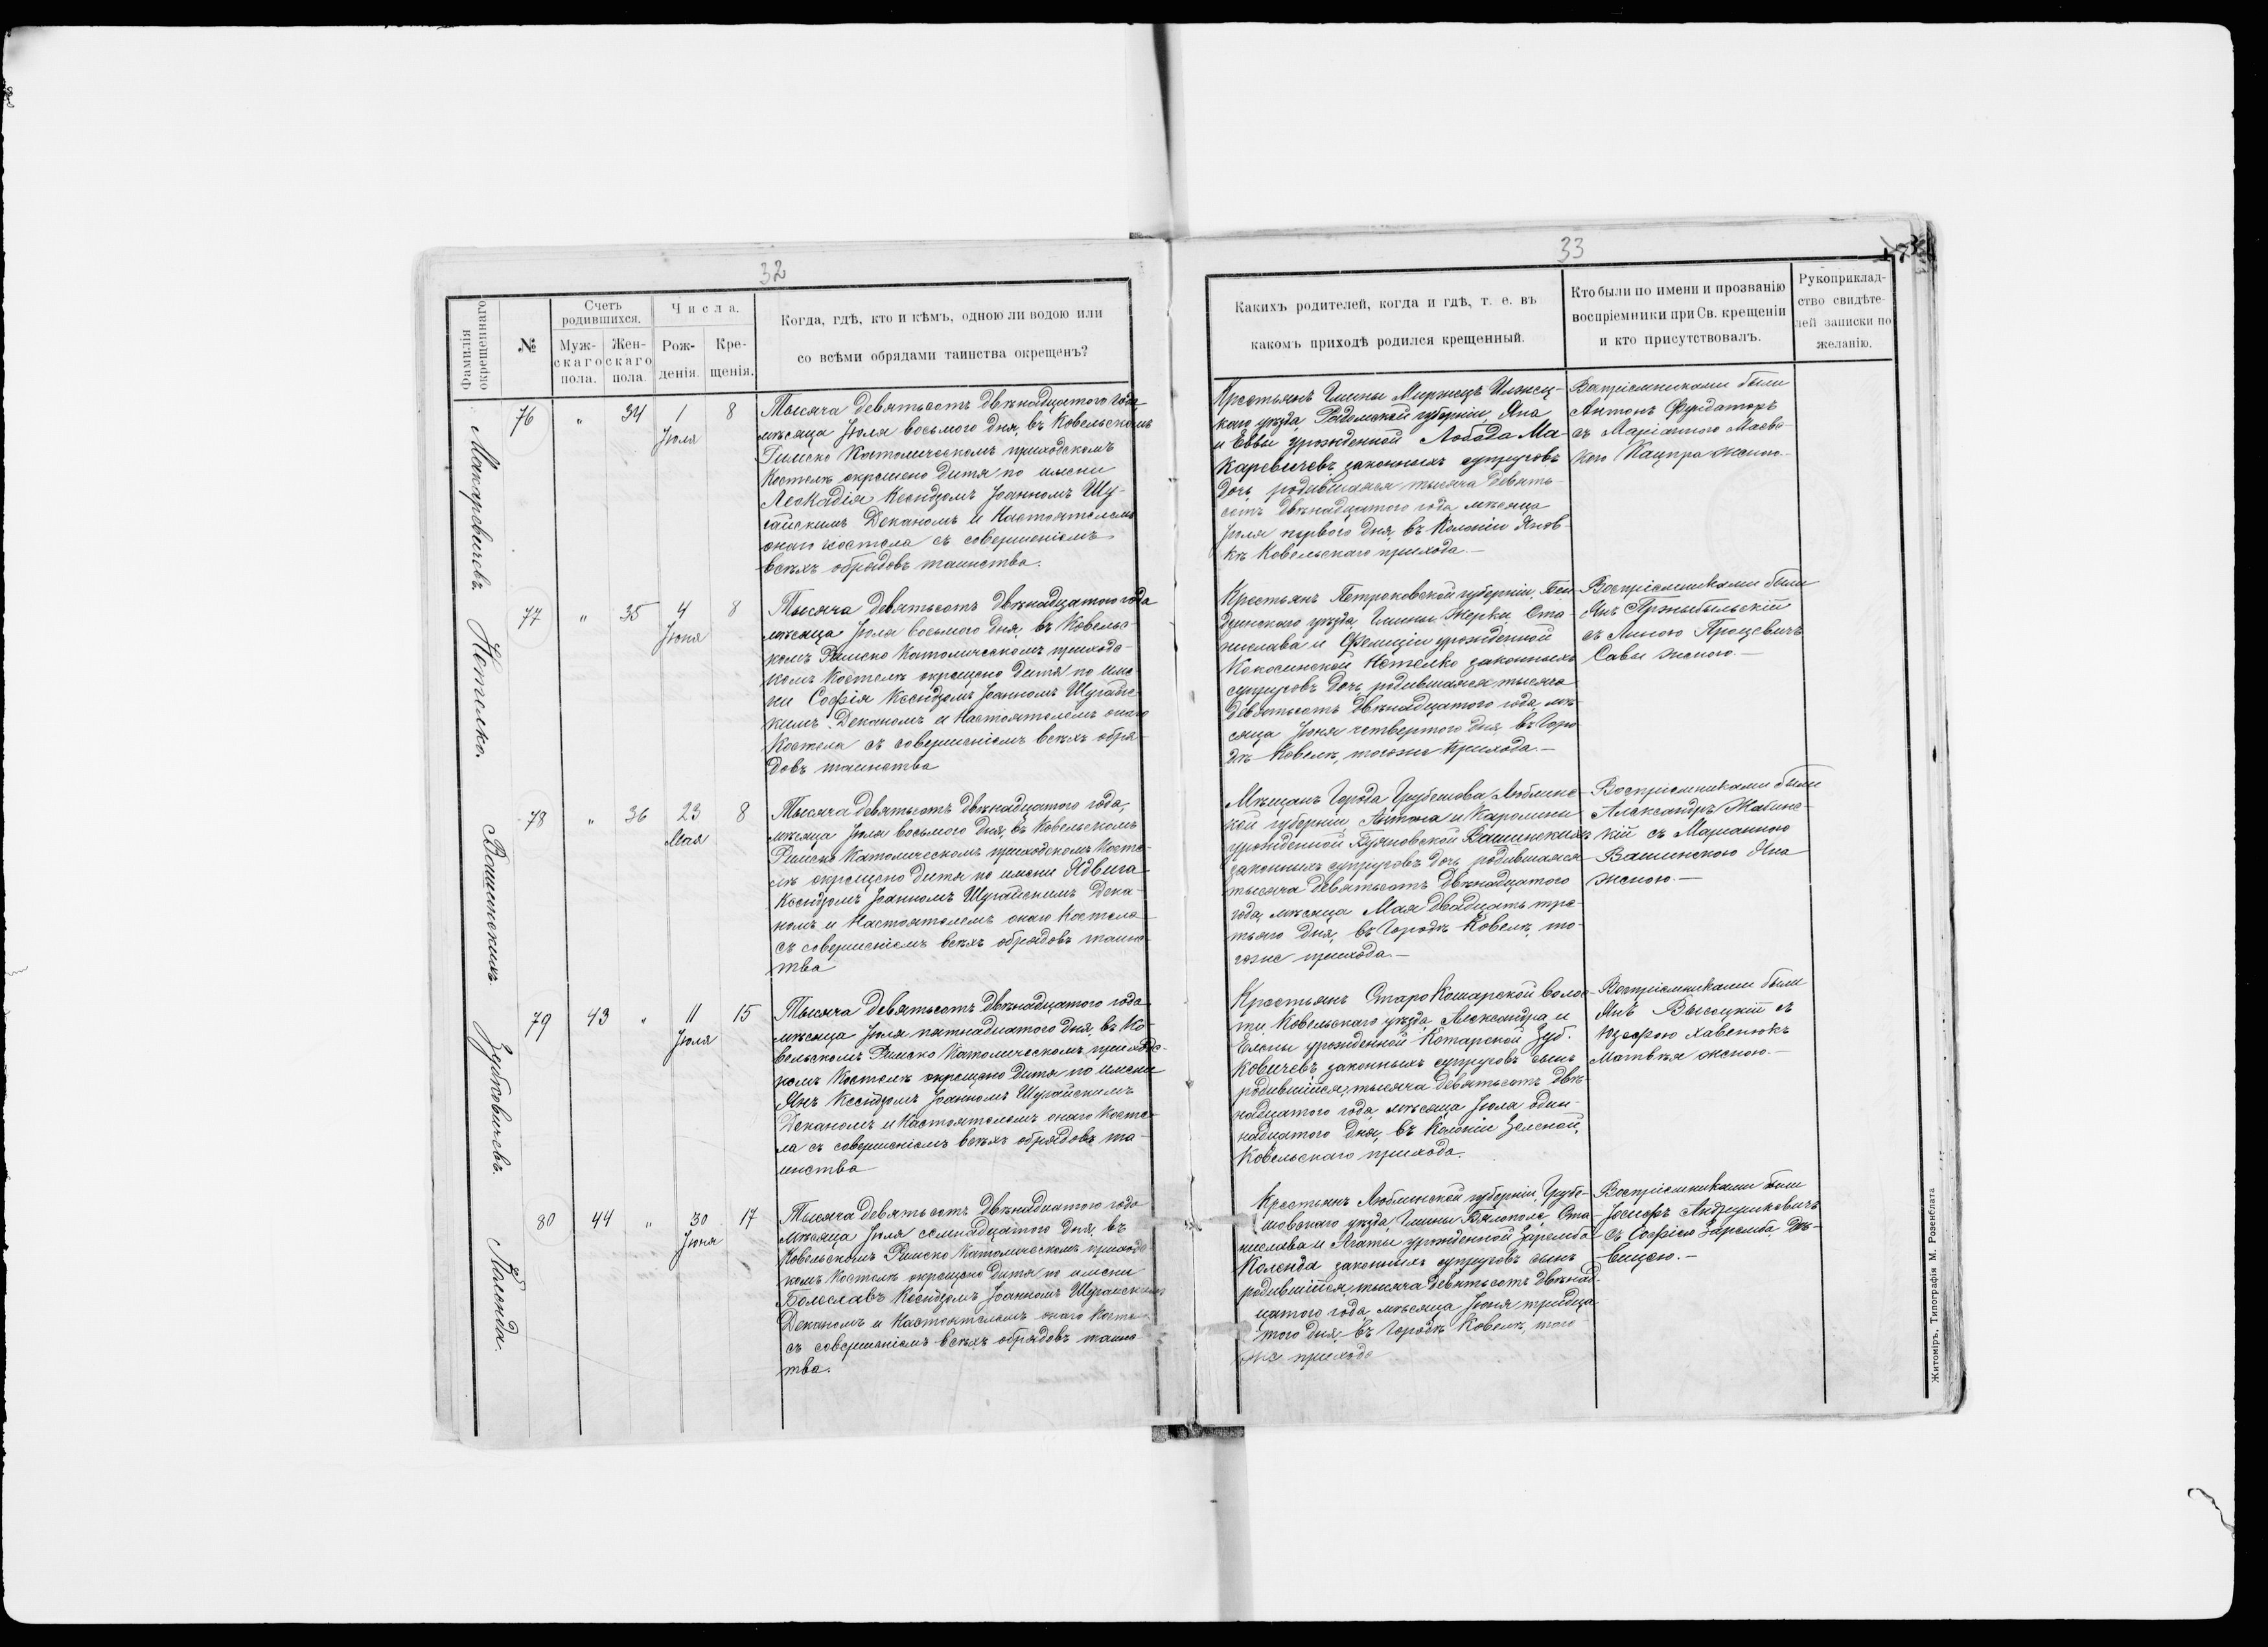 32
Фамилія
окрещеннаго
№
Счетъ
родившихся.
Муж-
скаго
пола.
Жен-
скаго
пола.
Числа.
Рож-
денія.
Кре-
щенія.
Когда, гдѣ, кто и кѣмъ, одною ли водою или
со всѣми обрядами таинства окрещенъ?
Макаревичевъ.
76
"
34
1
Іюля
8
Тысяча девятьсотъ двѣнадцатого года,
мѣсяца Іюля восьмого дня, въ Ковельскомъ
Римско Католическомъ приходскомъ
Костелѣ окрещено дитя по имени
Леокадія Ксендзомъ Іоанномъ Шу-
гайскимъ Деканомъ и Настоятелемъ
онаго костела съ совершеніемъ
всѣхъ обрядовъ таинства.
Нетелко.
77
"
35
4
Іюня
8
Тысяча девятьсотъ двѣнадцатого года
мѣсяца Іюля восьмого дня, въ Ковельс-
комъ Римско Католическомъ приходс-
комъ Костелѣ окрещено дитя по име-
ни Софія Ксендзомъ Іоанномъ Шугайс-
кимъ Деканомъ и Настоятелемъ онаго
Костела съ совершеніемъ всѣхъ обря-
довъ таинства
Вашинскихъ.
78
"
36
23
Мая
8
Тысяча девятьсотъ двѣнадцатого года,
мѣсяца Іюля восьмого дня, въ Ковельскомъ
Римско Католическомъ приходскомъ Косте-
лѣ окрещено дитя по имени Ядвига
Ксендзомъ Іоанномъ Шугайскимъ Дека-
номъ и Настоятелемъ онаго Костела
съ совершеніемъ всѣхъ обрядовъ таинс-
тва
Зубковичевъ.
79
43
"
11
Іюля
15
Тысяча девятьсотъ двѣнадцатого года
мѣсяца Іюля пятнадцатого дня, въ Ко-
вельскомъ Римско Католическомъ приходс-
комъ Костелѣ окрещено дитя по имени
Янъ Ксендзомъ Іоанномъ Шугайскимъ
Деканомъ и Настоятелемъ онаго Косте-
ла съ совершеніемъ всѣхъ обрядовъ та-
инства
Коленда.
80
44
"
30
Іюня
17
Тысяча девятьсотъ двѣнадцатого года
мѣсяца Іюля семнадцатого дня, въ
Ковельскомъ Римско Католическомъ приходс-
комъ Костелѣ окрещено дитя по имени
Болеславъ Ксендзомъ Іоанномъ Шугайскимъ
Деканомъ и Настоятелемъ онаго Костела
съ совершеніемъ всѣхъ обрядовъ таинс-
тва.
33
Какихъ родителей, когда и гдѣ, т. е. въ
какомъ приходѣ родился крещенный.
Кто были по имени и прозванію
воспріемники при Св. крещеніи
и кто присутствовалъ.
Рукоприклад-
ство свидѣте-
лей записки по
желанію.
Крестьянъ Гмины Миржецъ Илжец-
каго уѣзда, Радомской губерніи Яна
и Еввы урожденной Лобода Ма-
каревичевъ законныхъ супруговъ
дочь, родившаяся тысяча девять-
сотъ двѣнадцатого года мѣсяца
Іюля первого дня, въ Колоніи Янов-
кѣ Ковельскаго прихода.—
Воспріемниками были
Антонъ Фундаторъ
съ Маріанною Маевс-
кою Кацпра женою.—
Крестьянъ Петроковской губерніи, Бен-
динскаго уѣзда, Гмины Жерки Ста-
нислава и Фелиціи урожденной
Кокосинской Нетелко законныхъ
супруговъ дочь, родившаяся тысяча
девятьсотъ двѣнадцатого года, мѣ-
сяца Іюня четвертого дня, въ Горо-
дѣ Ковелѣ, тогоже прихода.—
Воспріемниками были
Янъ Пржыбыльскій
съ Анною Процевичъ
Савы женою.—
Мѣщанъ Города Грубешова Люблинс-
кой губерніи, Антона и Каролины
урожденной Буяновской Вашинскихъ
законныхъ супруговъ дочь, родившаяся
тысяча девятьсотъ двѣнадцатого
года, мѣсяца Мая двадцать тре-
тьяго дня, въ Городѣ Ковелѣ, то-
гоже прихода.—
Воспріемниками были
Александръ Жабинс-
кій съ Маріанною
Вашинскою Яна
женою.—
Крестьянъ Старо Кошарской волос-
ти, Ковельскаго уѣзда, Александра и
Елены урожденной Котарской Зуб-
ковичевъ законныхъ супруговъ сынъ
родившійся, тысяча девятьсотъ двѣ-
надцатого года, мѣсяца Іюля один-
надцатого дня, въ Колоніи Зеленой,
Ковельскаго прихода.
Воспріемниками были
Янъ Высоцкій съ
Юзефою Хавенюкъ
Матвѣя женою.—
Крестьянъ Люблинской губерніи, Грубе-
шовскаго уѣзда, Гмины Бялополе, Ста-
нислава и Агаты урожденной Заремба
Коленда законныхъ супруговъ сынъ
родившійся, тысяча девятьсотъ двѣнад-
цатого года, мѣсяца Іюня тридца-
того дня, въ Городѣ Ковелѣ, того-
же прихода
Воспріемниками были
Іосифъ Андрушковичъ
съ Софіею Заремба, Дѣ-
вицею.—
Житоміръ, Типографія М. Розенблата